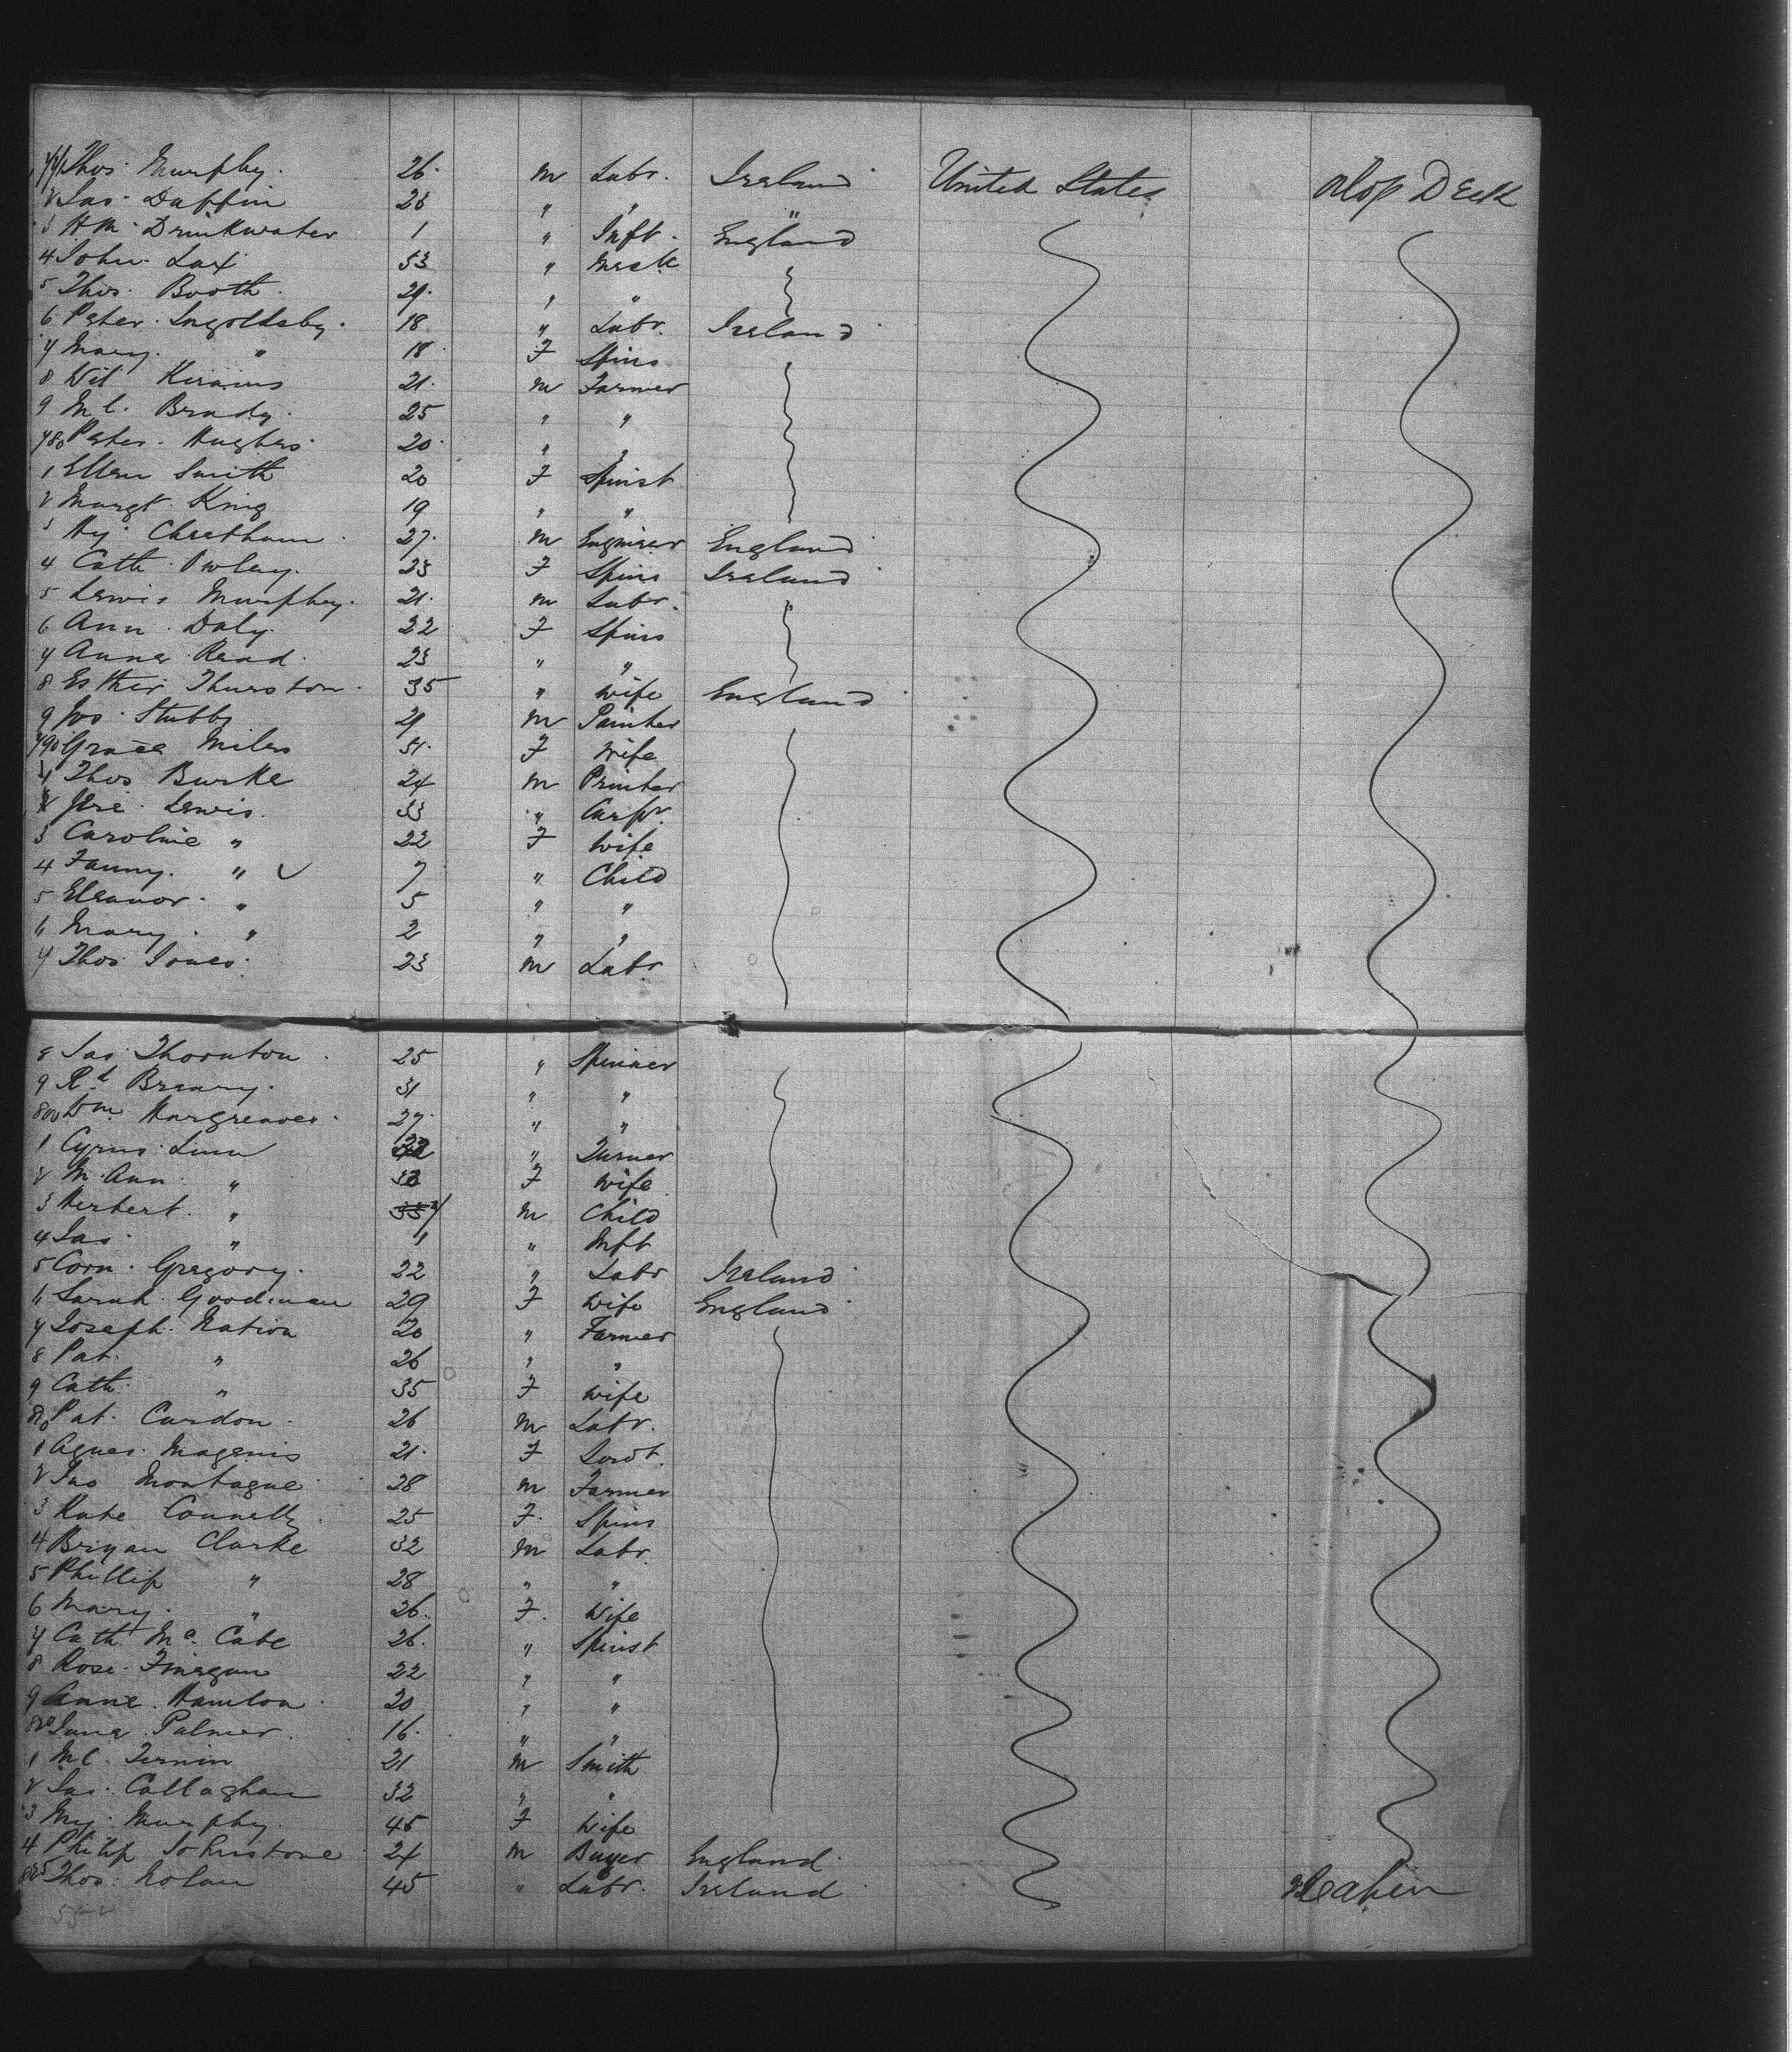 771 Thos. Murphy. 26. m Labr. Ireland United States 2lop Deck
2 Jas. Daffin 23 " " "
3 Hm. Drinkwater 1 " Inft. England
4 John. Lax 53 " Mech
5 Thos. Booth. 29. " "
6 Peter. Ingoldsby. 18 " Labr. Ireland
7 Mary. " 18 F Spins
8 Wil 21. m Farmer
9 Ml. Brady. 25 " "
780 Peter. Hughes. 20. " "
1 Ellen Smith 20 F Spinst
2 Margt. King 19 " "
3 Hy. Cheetham. 27. m Engineer England
4 Cath. Owley. 23 F Spins Ireland
5 Lewis Murphy. 21. m Labr.
6 Ann. Daly. 22 F Spins
7 Anne Read. 23 " "
8 Esther Thurston. 35 " Wife England
9 Jos. Stubbs 21 m Painter
790 Grace Miles 51. F Wife
1 Thos Burke 24 m Printer
2 Lewis. 33 " Carpr.
3 Caroline " 22 F Wife
4 Fanny. " 7 " Child
5 Eleanor. " 5 " "
6 Mary. " 2 " "
7 Thos Jones. 23 m Labr
8 Jas. Thornton. 25 " Spinner
9 Rd Breary. 31 " "
800 Wm. Hargreaves. 27. " "
1 Cyrus Linn " Turner
2 M. Ann. " 32 F Wife
3 Herbert. " m Child
4 Jas. " 1 " Inft
5 Corn. Gregory. 22 " Labr Ireland.
6 Sarah. Goodman 29 F Wife England.
7 Joseph. Nation 20 " Farmer
8 Pat. " 26 " "
9 Cath. " 35 F Wife
810 Pat. Cardon. 26 m Labr.
1 Agnes. Magenis 21. F Servt.
2 Jno Montague 28 m Farmer
3 Kate Connelly. 25 F. Spins
4 Bryan Clarke 32 m Labr.
5 Phillip " 28 " "
6 Mary. " 26. F. Wife
7 Cath. Mc. Cabe 26. " Spinst
8 Rose. Finegan 22 " "
9 Anne. Hamilton. 20 " "
820 Jane. Palmer. 16. " "
1 Ml. Ternin 21 m Smith
2 Jas. Callaghan 32 " "
3 My. Murphy. 45 F Wife
4 Philip Johnstone 24 m Buyer England.
825 Thos. Nolan 45 " Labr. Ireland. Cabin